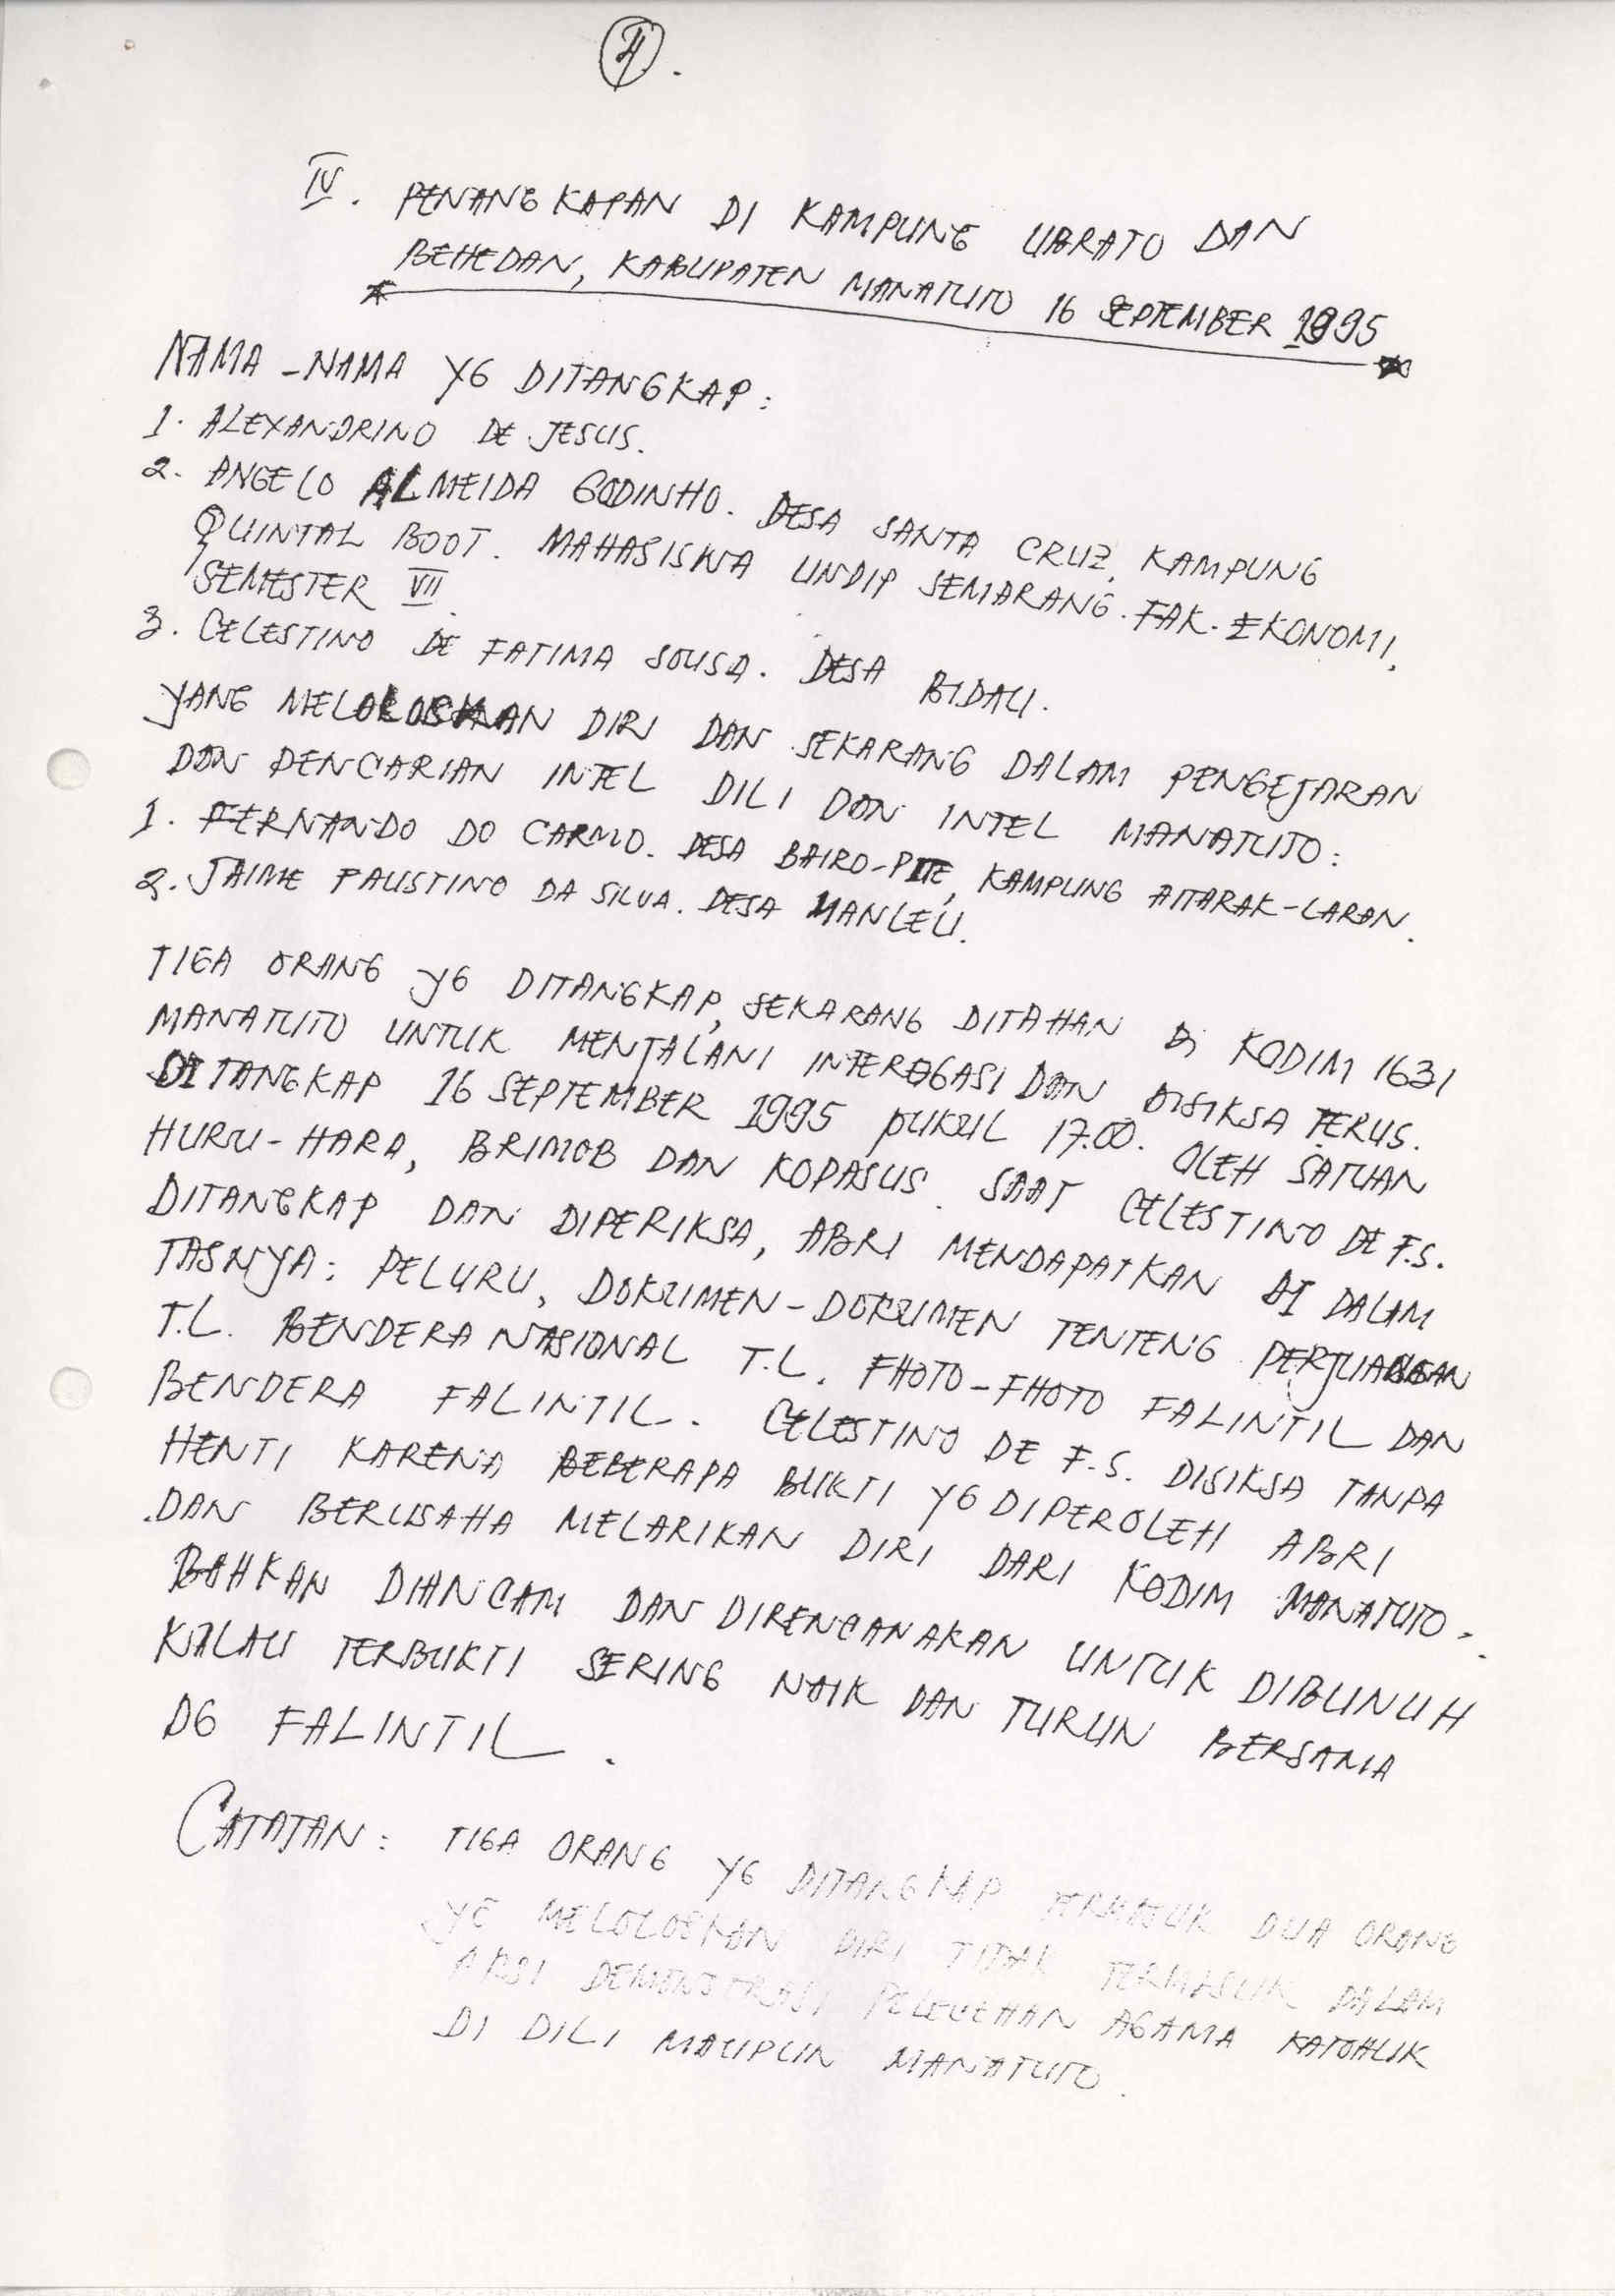 IV. PENANGKAPAN DI KAMPUNG UBRATO DAN
BEHEDAN, KABUPATEN MANATUTO 16 SEPTEMBER 1995
NAMA-NAMA YG DITANGKAP:
1. ALEXANDRINO DE JESUS.
2. ANGELO ALMEIDA GODINHO. DESA SANTA CRUZ, KAMPUNG
QUINTAL BOOT. MAHASISWA UNDIP SEMARANG. FAK. EKONOMI,
SEMESTER VII.
3. CELESTINO DE FATIMA SOUSA. DESA BIDAU.
YANG MELOLOSKAN DIRI DAN SEKARANG DALAM PENGEJARAN
DAN PENCARIAN INTEL DILI DAN INTEL MANATUTO:
1. FERNANDO DO CARMO. DESA BAIRO-PITE, KAMPUNG AITARAK-LARAN.
2. JAIME FAUSTINO DA SILVA. DESA MANLEU.
TIGA ORANG YG DITANGKAP, SEKARANG DITAHAN Di KODIM 1631
MANATUTO UNTUK MENJALANI INTEROGASI DAN DISIKSA TERUS.
DITANGKAP 16 SEPTEMBER 1995 PUKUL 17.00. OLEH SATUAN
HURU-HARA, BRIMOB DAN KOPASUS. SAAT CELESTINO DE F.S.
DITANGKAP DAN DIPERIKSA, ABRI MENDAPATKAN DI DALAM
TASNYA: PELURU, DOKUMEN-DOKUMEN TENTENG PERJUANGAN
T.L. BENDERA NASIONAL T.L. FHOTO-FHOTO FALINTIL DAN
BENDERA FALINTIL. CELESTINO DE F.S. DISIKSA TANPA
HENTI KARENA BEBERAPA BUKTI YG DIPEROLEH ABRI
DAN BERUSAHA MELARIKAN DIRI DARI KODIM MANATUTO.
BAHKAN DIANCAM DAN DIRENCANAKAN UNTUK DIBUNUH
KALAU TERBUKTI SERING NAIK DAN TURUN BERSAMA
DG FALINTIL.
CATATAN: TIGA ORANG YG DITANGKAP TERMASUK DUA ORANG
YG MELOLOSKAN DIRI TIDAK TERMASUK DALAM
AKSI DEMONSTRASI PELECEHAN AGAMA KATOHLIK
DI DILI MAUPUN MANATUTO.